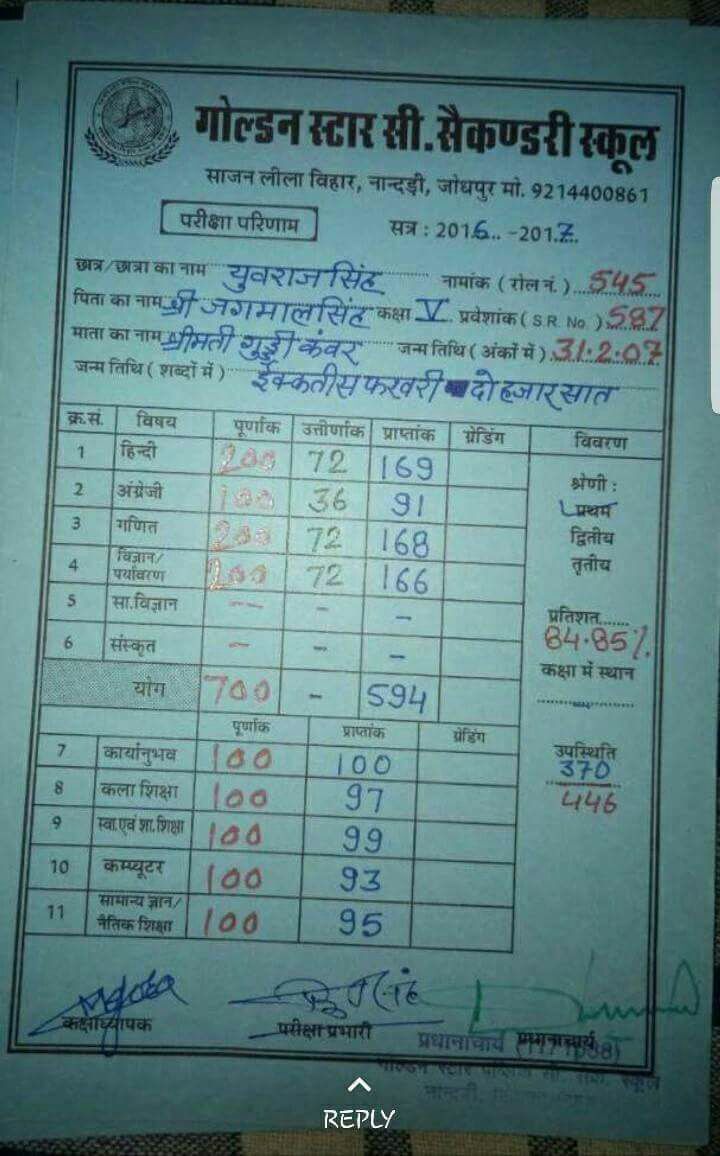 गोल्डन स्टार सी.सैकण्डरी स्कूल
साजन लीला विहार, नान्दड़ी, जोधपुर मो. 9214400861
परीक्षा परिणाम सत्र : 2016.. -2017.
छात्र/छात्रा का नाम युवराज सिंह नामांक ( रोल नं. ) 545
पिता का नाम श्री जगमालसिंह कक्षा V प्रवेशांक ( S.R. No. ) 587
माता का नाम श्रीमती गुड्डी कंवर जन्म तिथि ( अंकों में ) 31.2.07
जन्म तिथि ( शब्दों में ) ईक्कतीस फरवरी दो हजार सात
क्र.सं. विषय पूर्णांक उत्तीर्णांक प्राप्तांक ग्रेडिंग विवरण
1 हिन्दी 200 72 169
2 अंग्रेजी 100 36 91
3 गणित 200 72 168
4 विज्ञान/पर्यावरण 200 72 166
5 सा.विज्ञान -- - -
6 संस्कृत - - -
योग 700 - 594
श्रेणी :
प्रथम
द्वितीय
तृतीय
प्रतिशत......
84.85%
कक्षा में स्थान
उपस्थिति
370
446
पूर्णांक प्राप्तांक ग्रेडिंग
7 कार्यानुभव 100 100
8 कला शिक्षा 100 97
9 स्वा.एवं शा.शिक्षा 100 99
10 कम्प्यूटर 100 93
11 सामान्य ज्ञान/नैतिक शिक्षा 100 95
कक्षाध्यापक परीक्षा प्रभारी प्रधानाचार्य
प्रधानाचार्य
REPLY